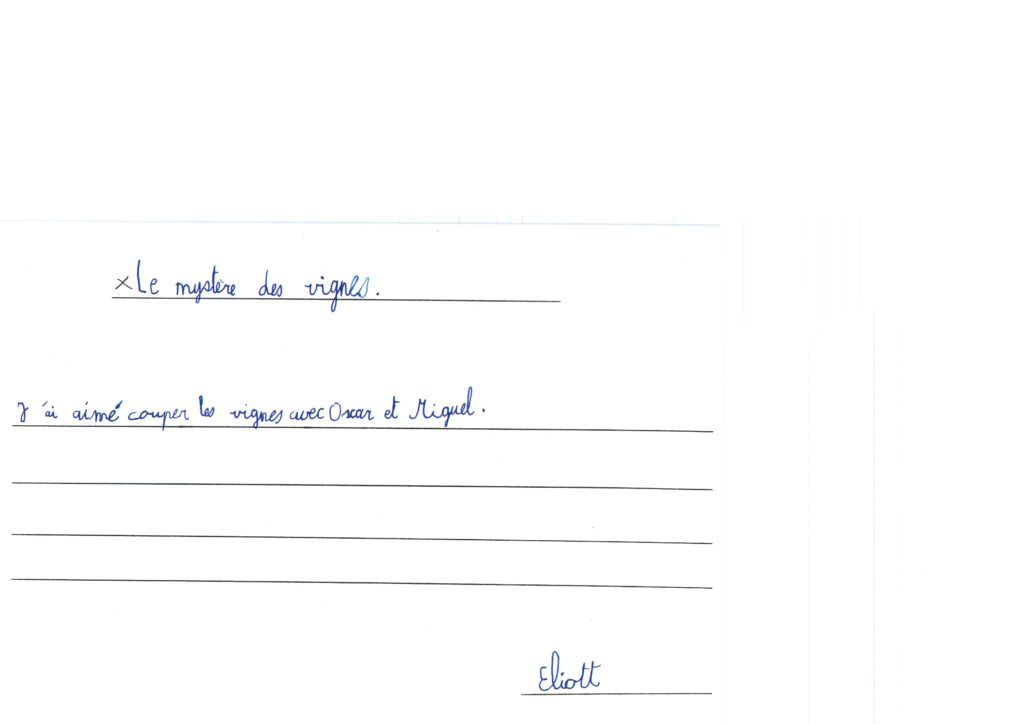 ×Le mystère des vignes.
J'ai aimé couper les vignes avec Oscar et Miguel.
Eliott